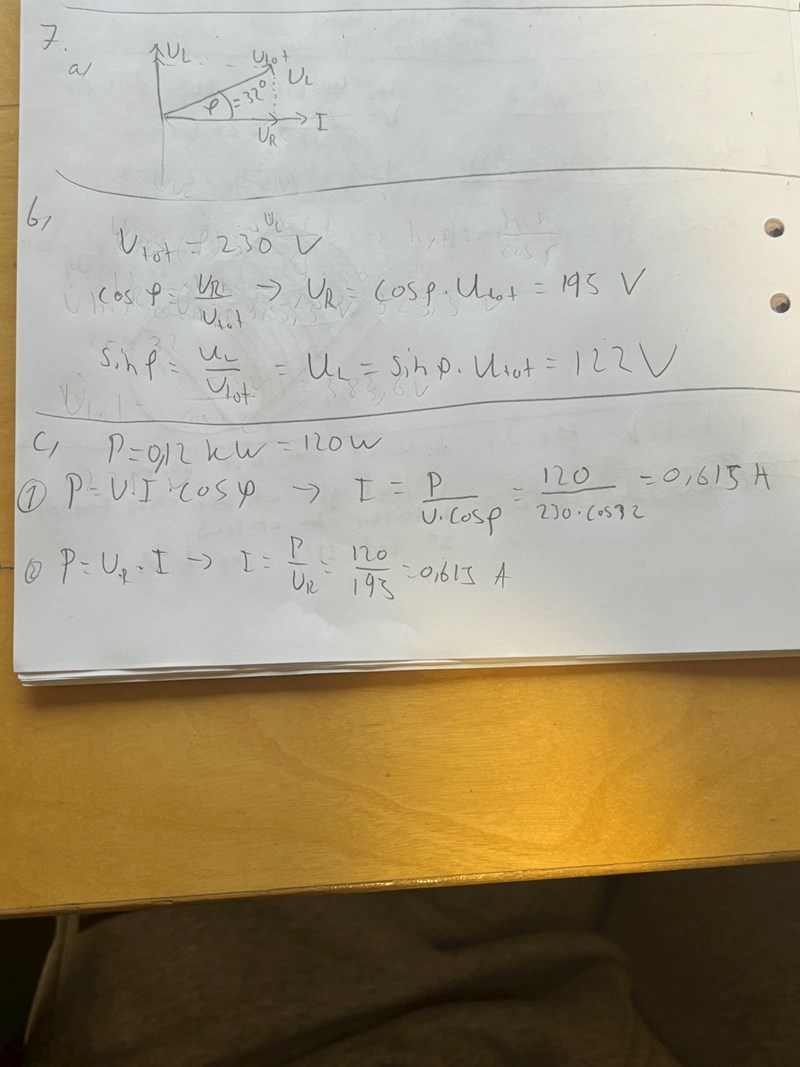 7.
a)
UL
Utot
UL
φ = 32°
I
UR
b)
Utot = 230 V
cos φ = UR/Utot → UR = cosφ · Utot = 195 V
sin φ = UL/Utot = UL = sin φ · Utot = 122 V
c) P = 0,12 kW = 120 W
① P = U · I · cos φ → I = P/U · cosφ = 120/230 · cos32 = 0,615 A
② P = UR · I → I = P/UR = 120/195 = 0,615 A